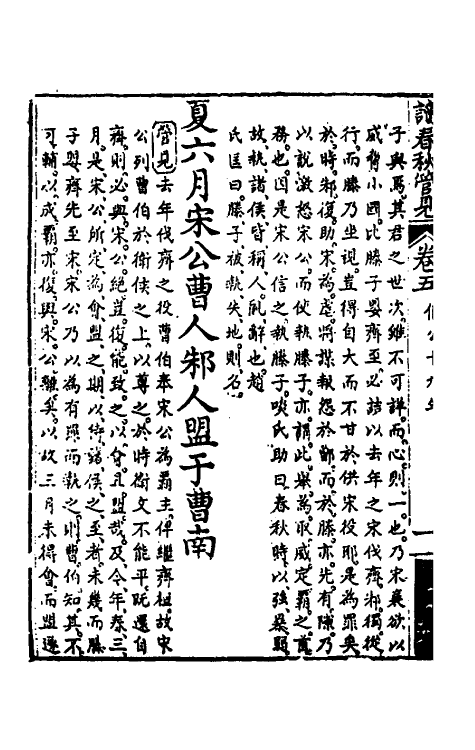 讀春秋管見 卷五 僖公十九年 一
子與焉其君之世次雖不可詳而心則一也乃宋襄欲以
威脅小國比滕子嬰齊至必詰以去年之宋伐齊邾獨從
行而滕乃坐視豈得自大而不甘於供宋役耶是為罪矣
於時邾復助宋為虐將謀執怨於鄫而於滕亦先有隙乃
以說激怒宋公而使執滕子亦謂此舉為取威定霸之首
務也因是宋公信之執滕子啖氏助曰春秋時以強暴題
故執諸侯皆稱人賤辭也趙
氏匡曰滕子被執失地則名
夏六月宋公曹人邾人盟于曹南
管見去年伐齊之役曹伯奉宋公為霸主俾繼齊桓故宋
公列曹伯於衛侯之上以尊之於時衛文不能平既還自
齊則必與宋公絕豈復能致之以會且盟哉及今年春三
月是宋公所定為會盟之期以待諸侯之至者未幾而滕
子嬰齊先至宋宋公乃以為有罪而執之則曹伯知其不
可輔以成霸亦復與宋公離矣以故三月未得會而盟遂